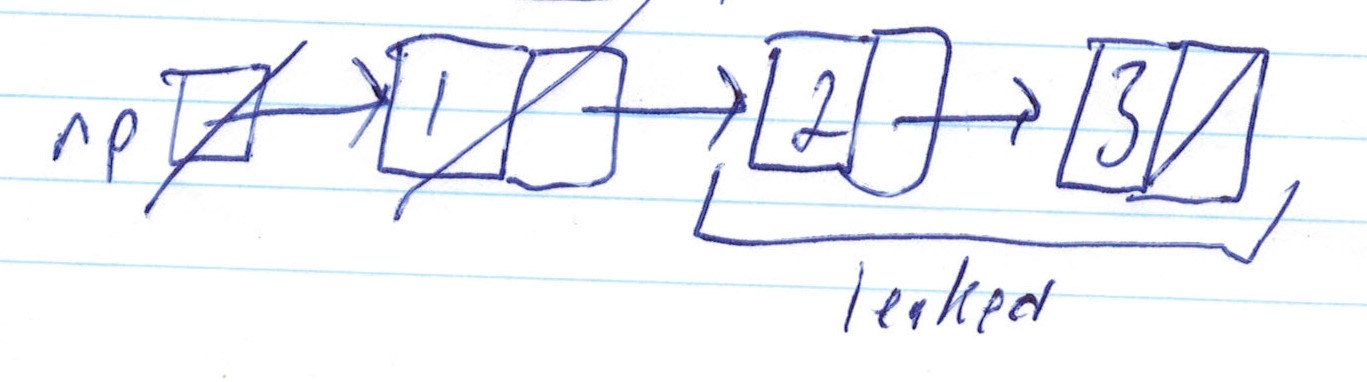 np 1 2 3
leaked